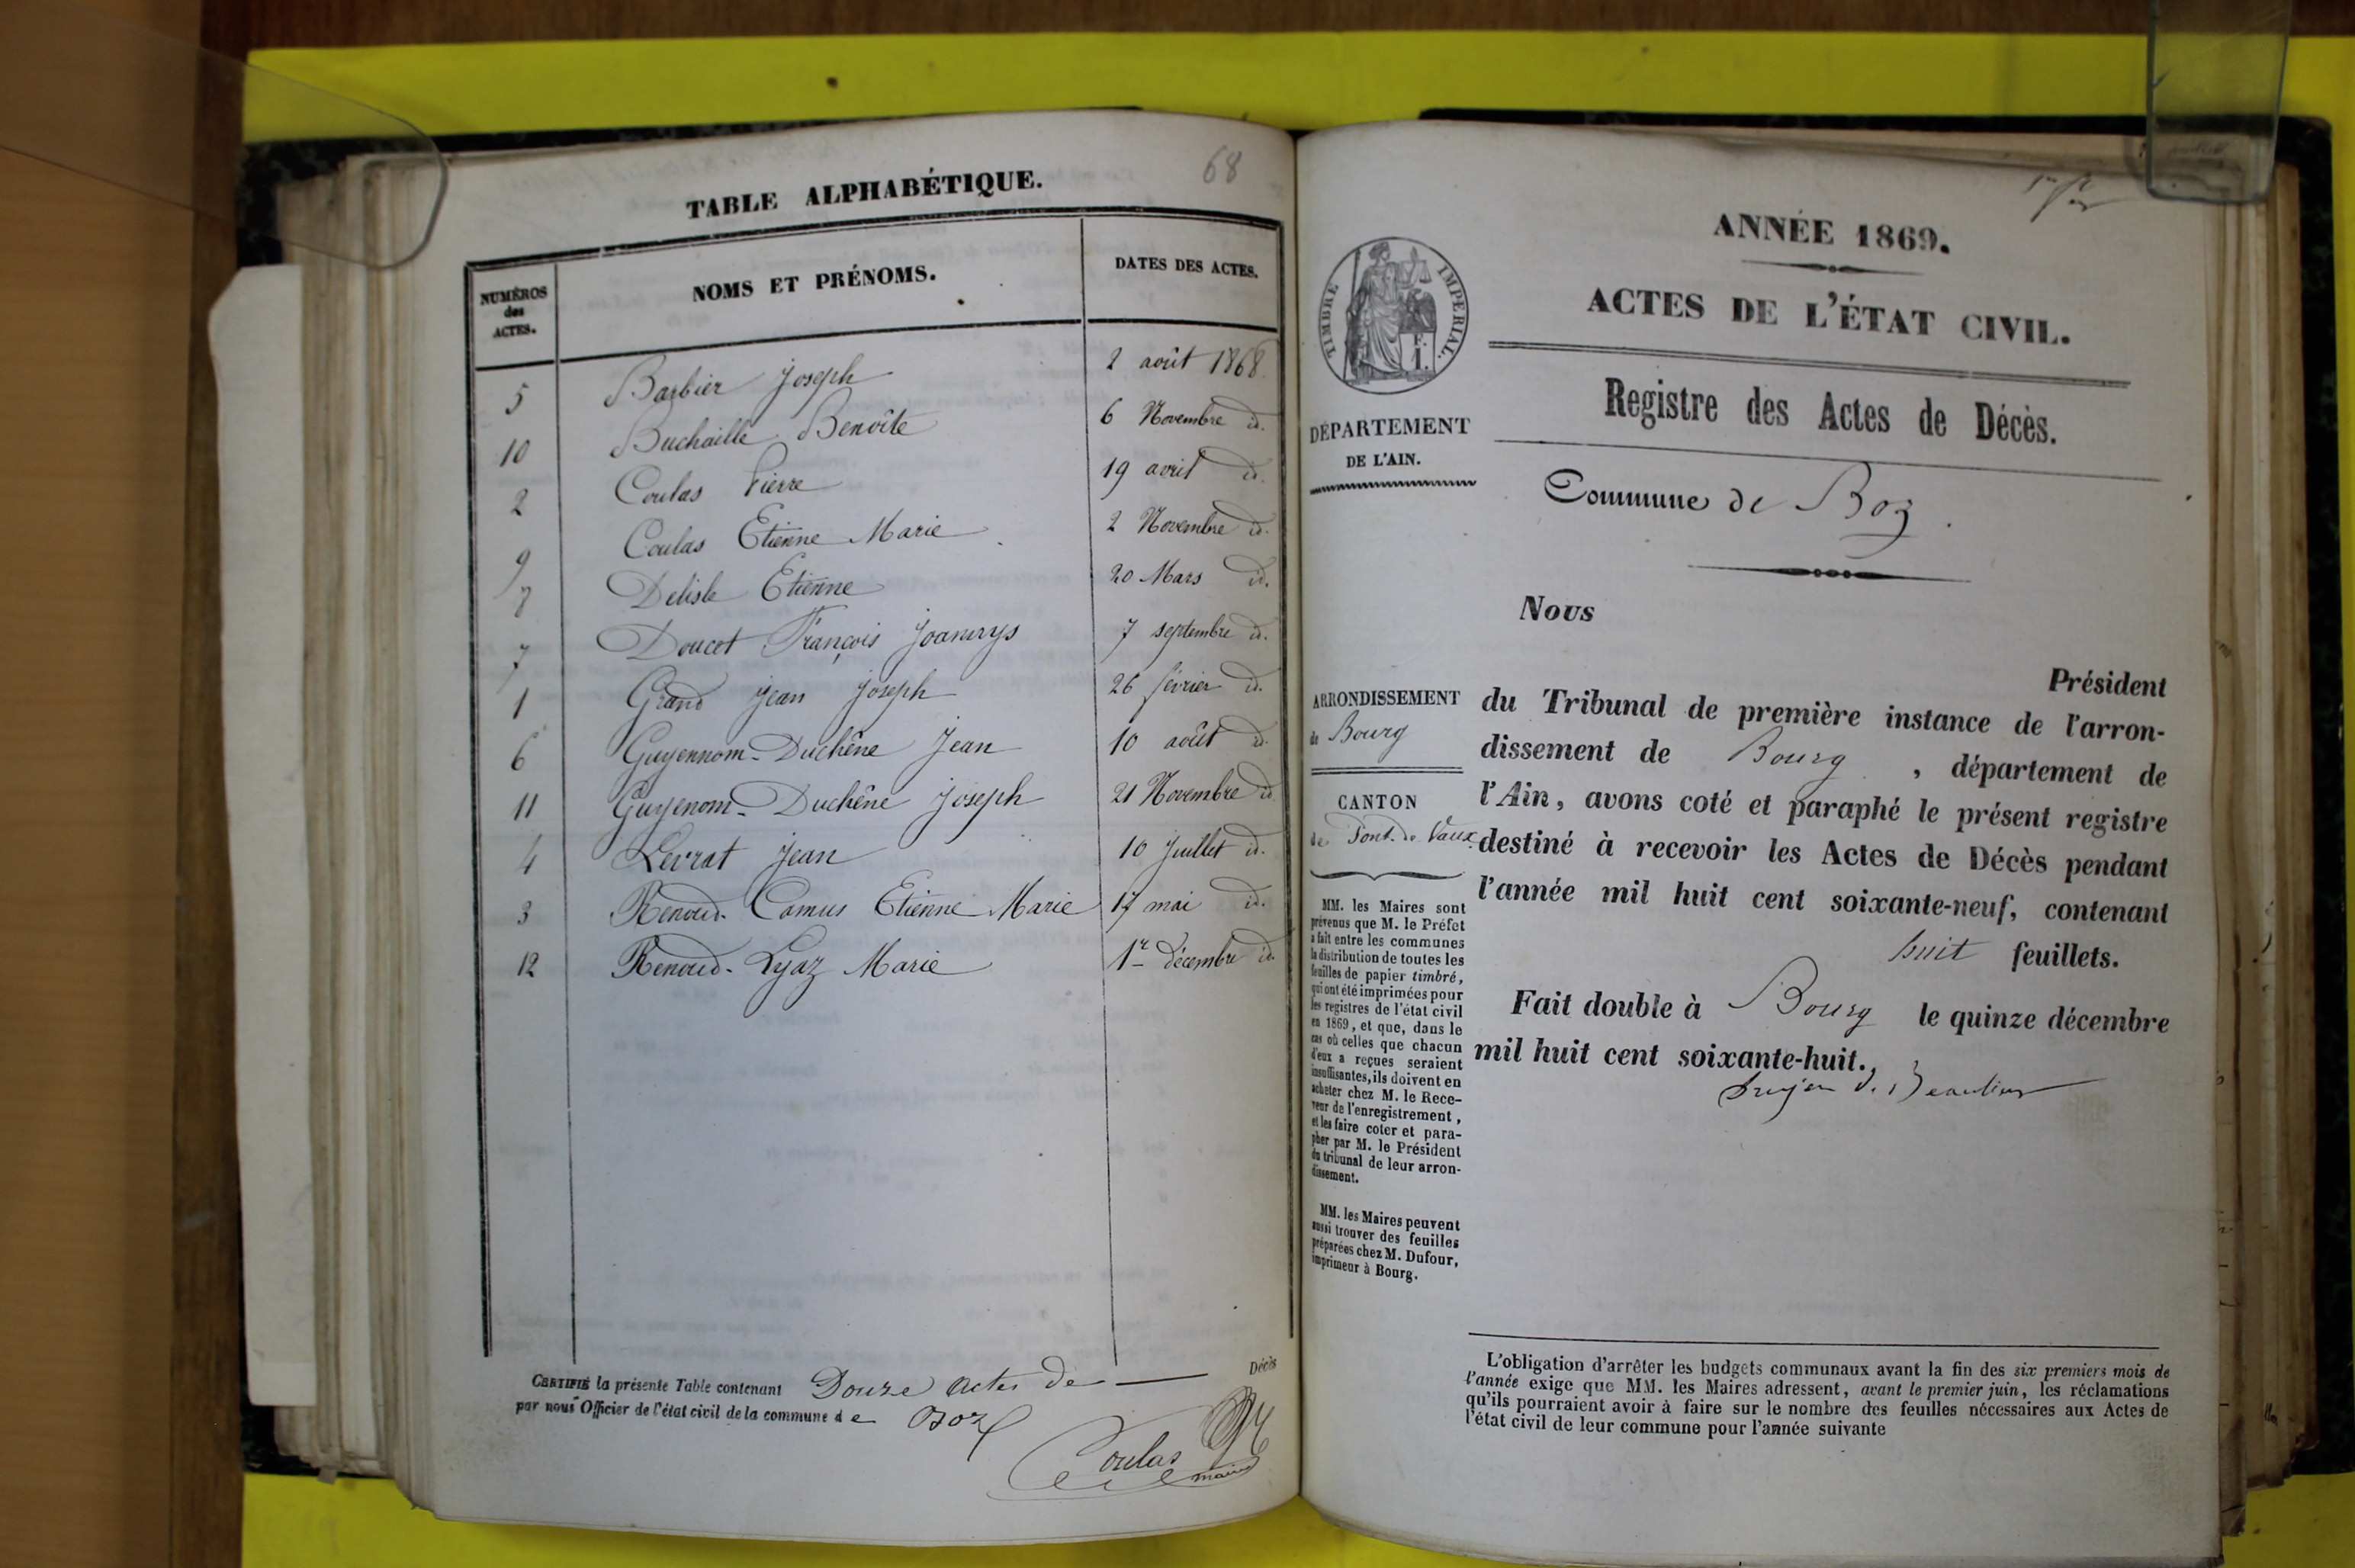 68
TABLE ALPHABÉTIQUE.
NUMÉROS des ACTES. NOMS ET PRÉNOMS. DATES DES ACTES.
5 Barbier Joseph 2 août 1868
10 Buchaille Benoîte 6 Novembre id.
2 Coulas Pierre 19 avril id.
9 Coulas Etienne Marie 2 Novembre id.
8 Delisle Etienne 20 Mars id.
7 Doucet François Joanny 7 septembre id.
1 Grand Jean Joseph 26 février id.
6 Guyennom-Duchêne Jean 10 août id.
11 Guyenom-Duchêne Joseph 21 Novembre id
4 Levrat Jean 10 Juillet id.
3 Renoud-Camus Etienne Marie 17 mai id.
12 Renoud-Lyaz Marie 1er décembre id.
CERTIFIÉ la présente Table contenant Douze actes de Décès
par nous Officier de l'état civil de la commune de Boz
Coulas
maire
ANNÉE 1869.
ACTES DE L'ÉTAT CIVIL.
TIMBRE IMPERIAL.
Registre des Actes de Décès.
DÉPARTEMENT
DE L'AIN.
Commune de Boz.
Nous
Président
ARRONDISSEMENT
de Bourg
CANTON
de Pont-de-Vaux
du Tribunal de première instance de l'arron-
dissement de Bourg, département de
l'Ain, avons coté et paraphé le présent registre
destiné à recevoir les Actes de Décès pendant
l'année mil huit cent soixante-neuf, contenant
huit feuillets.
Fait double à Bourg le quinze décembre
mil huit cent soixante-huit.
MM. les Maires sont
prévenus que M. le Préfet
a fait entre les communes
la distribution de toutes les
feuilles de papier timbré,
qui ont été imprimées pour
les registres de l'état civil
en 1869, et que, dans le
cas où celles que chacun
d'eux a reçues seraient
insuffisantes, ils doivent en
acheter chez M. le Rece-
veur de l'enregistrement,
et les faire coter et para-
pher par M. le Président
du tribunal de leur arron-
dissement.
MM. les Maires peuvent
aussi trouver des feuilles
préparées chez M. Dufour,
imprimeur à Bourg.
L'obligation d'arrêter les budgets communaux avant la fin des six premiers mois de
l'année exige que MM. les Maires adressent, avant le premier juin, les réclamations
qu'ils pourraient avoir à faire sur le nombre des feuilles nécessaires aux Actes de
l'état civil de leur commune pour l'année suivante